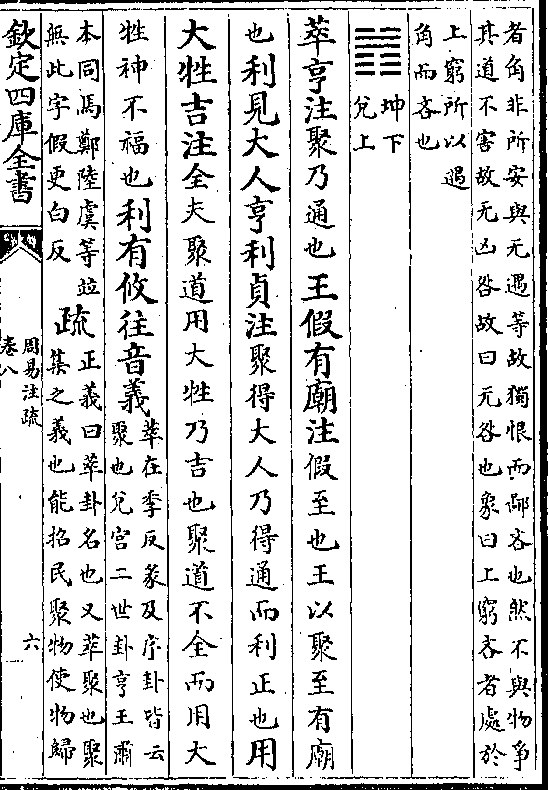 者角非所安與无遇等故獨恨而鄙吝也然不與物爭
其道不害故无凶咎故曰无咎也象曰上窮吝者處於
上窮所以遇
角而吝也
坤下
兌上
萃亨注聚乃通也王假有廟注假至也王以聚至有廟
也利見大人亨利貞注聚得大人乃得通而利正也用
大牲吉注全夫聚道用大牲乃吉也聚道不全而用大
牲神不福也利有攸往音義
萃在季反彖及序卦皆云
聚也兌宮二世卦亨王肅
本同馬鄭陸虞等並
無此字假更白反
疏
正義曰萃卦名也又萃聚也聚
集之義也能招民聚物使物歸
欽定四庫全書
周易注疏
卷八
六